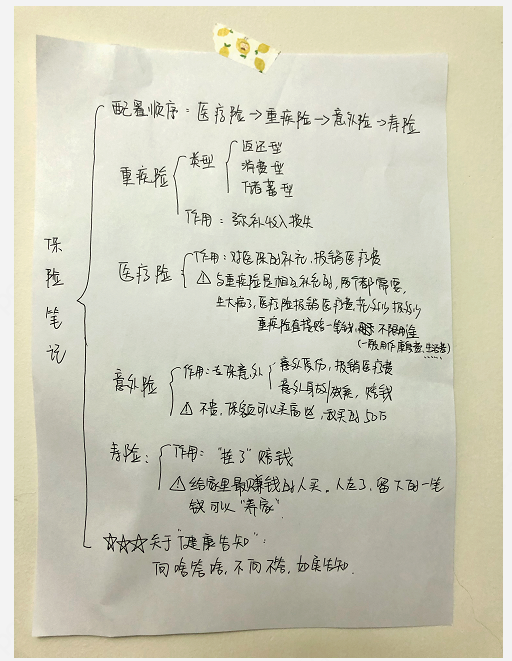 保险笔记
配置顺序：医疗险→重疾险→意外险→寿险
重疾险
类型
返还型
消费型
储蓄型
作用：弥补收入损失
医疗险
作用：对医保的补充，报销医疗费
⚠与重疾险是相互补充的，两个都需要，
生大病了，医疗险报销医疗费，花多少报多少
重疾险直接赔一笔钱，不限用途
(一般用作康复费,生活费)
意外险
作用：去保意外
意外医伤，报销医疗费
意外身故/残疾，赔钱
⚠不贵，保额可以买高些，我买的50万
寿险：
作用："挂了"赔钱
⚠给家里最赚钱的人买。人走了，留下的一笔
钱可以"养家".
☆☆☆关于"健康告知"：
问啥答啥，不问不答，如实告知.